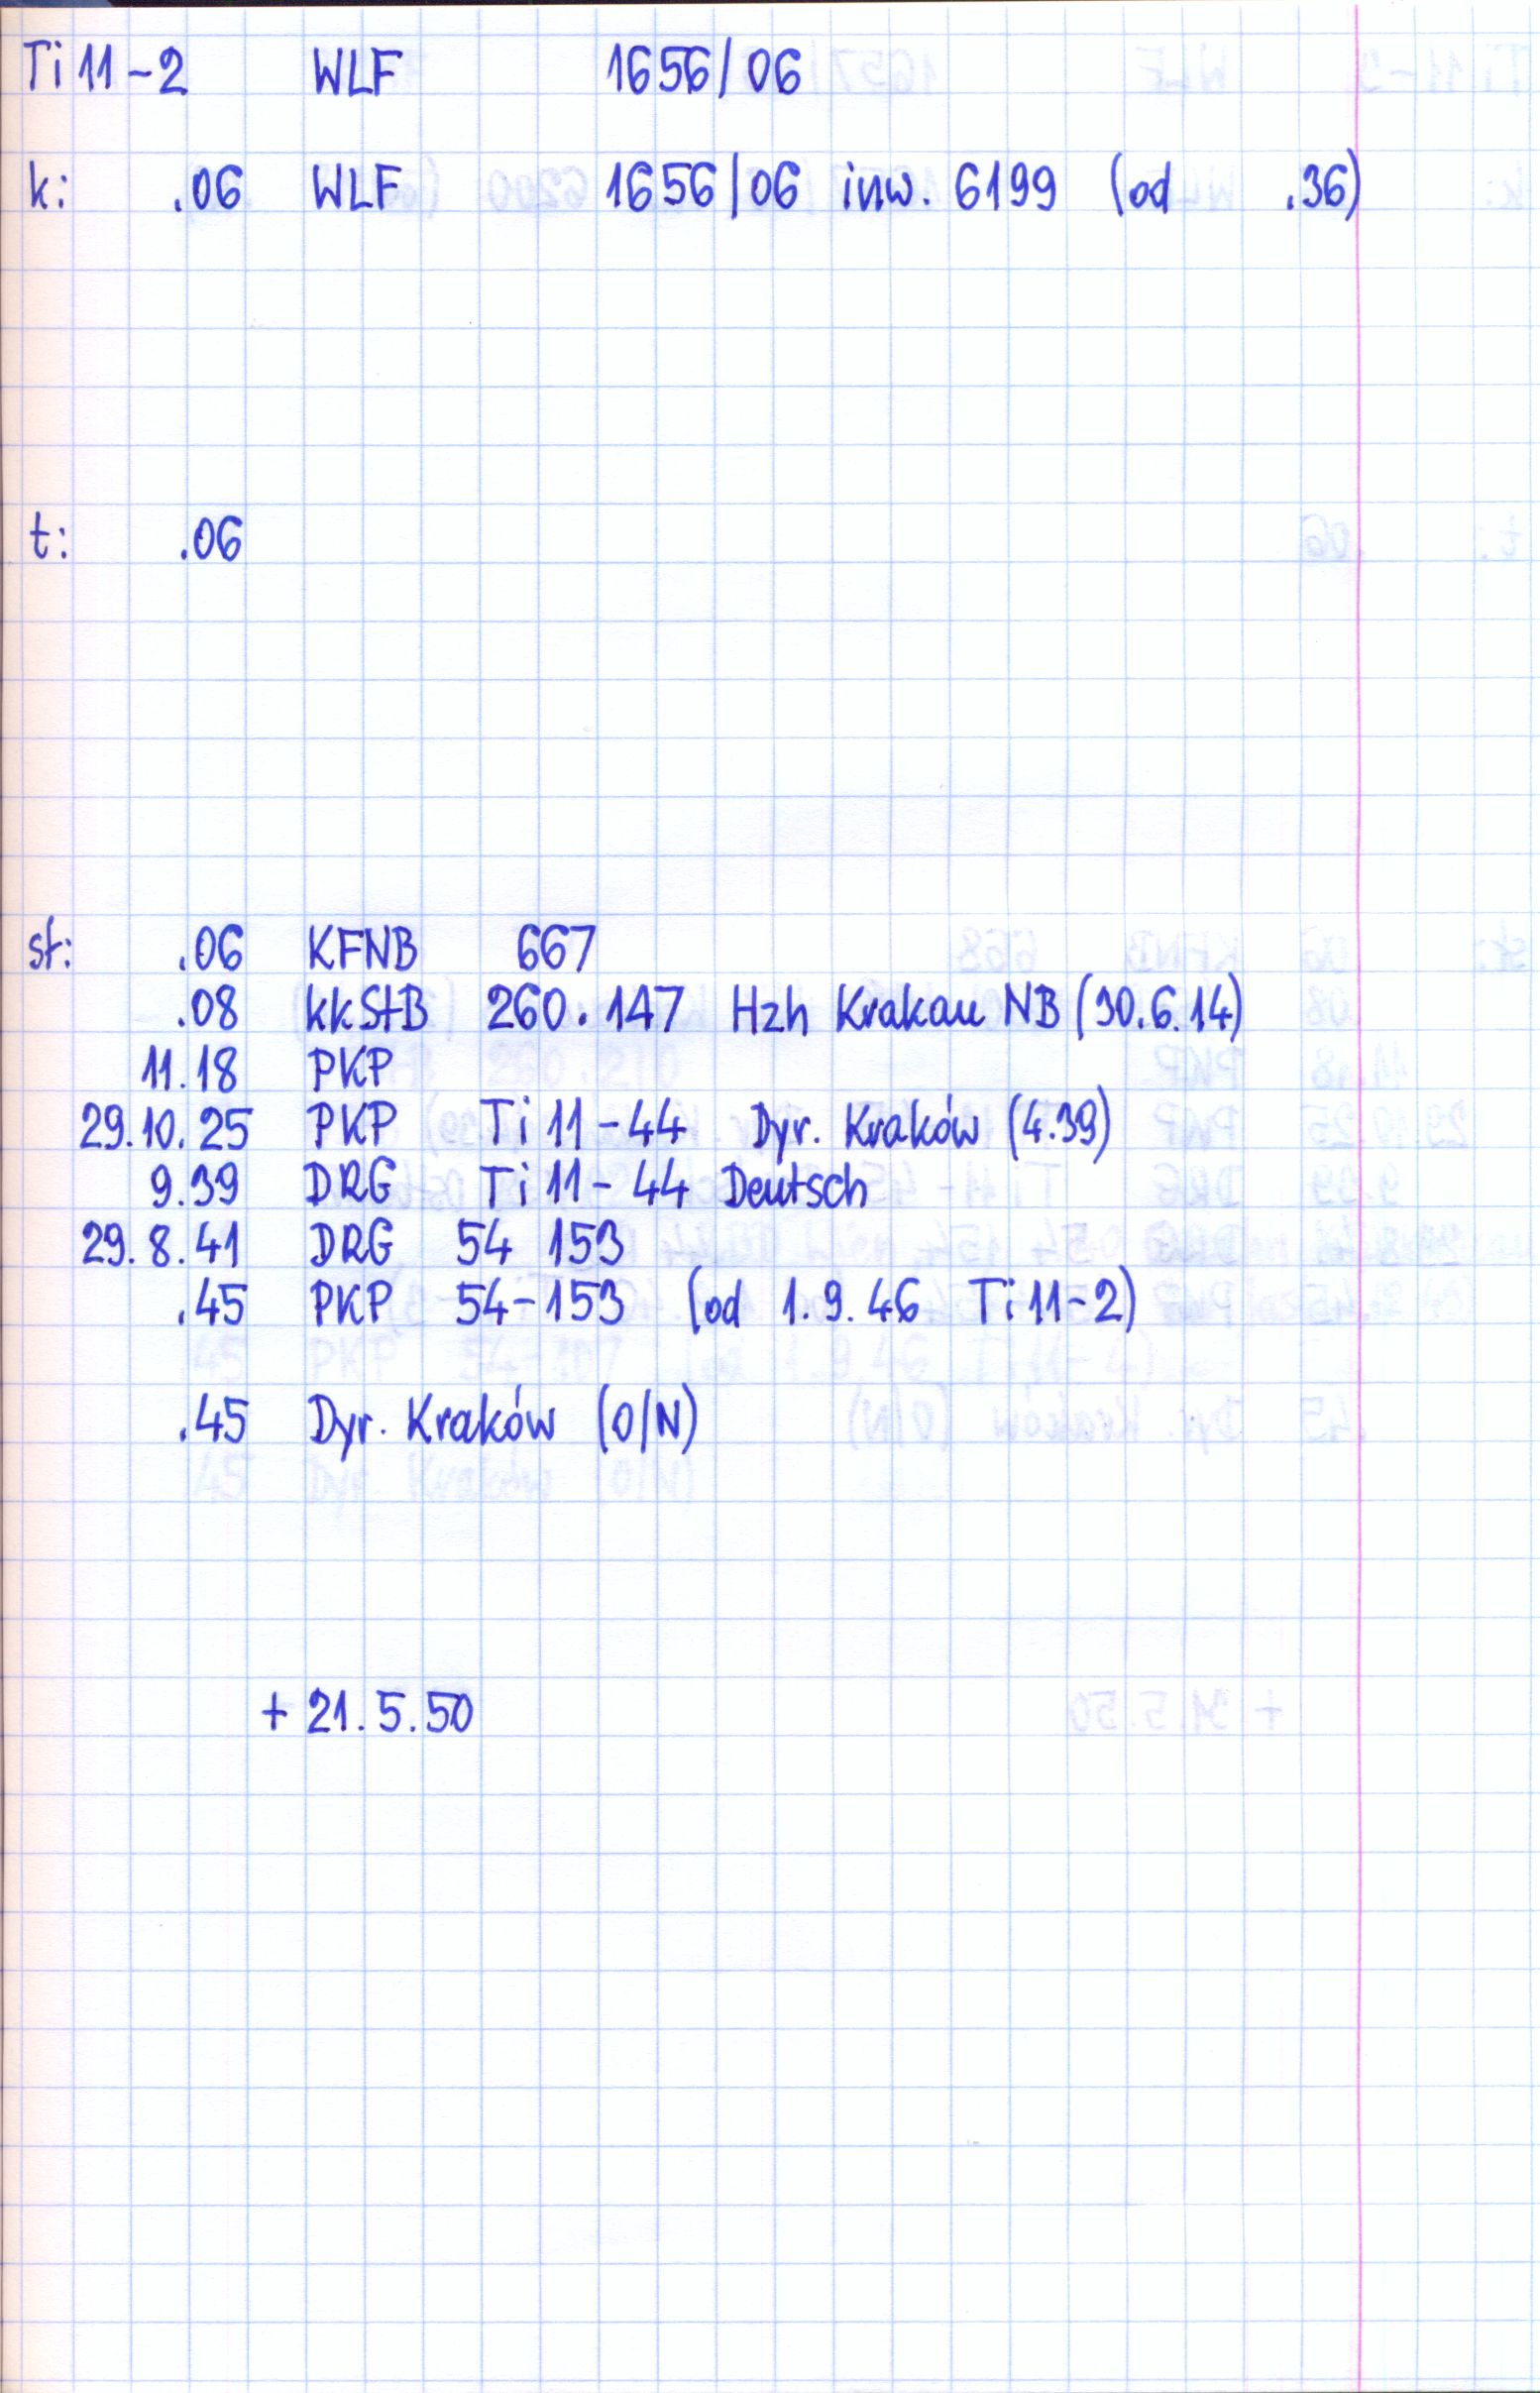 Ti 11-2 WLF 1656/06
k: .06 WLF 1656/06 inw. 6199 (od .36)
t: .06
st: .06 KFNB 667
.08 kkStB 260.147 Hzh Krakau NB (30.6.14)
11.18 PKP
29.10.25 PKP Ti 11-44 Dyr. Kraków (4.39)
9.39 DRG Ti 11-44 Deutsch
29.8.41 DRG 54 153
.45 PKP 54-153 (od 1.9.46 Ti 11-2)
.45 Dyr. Kraków (O/N)
+ 21.5.50